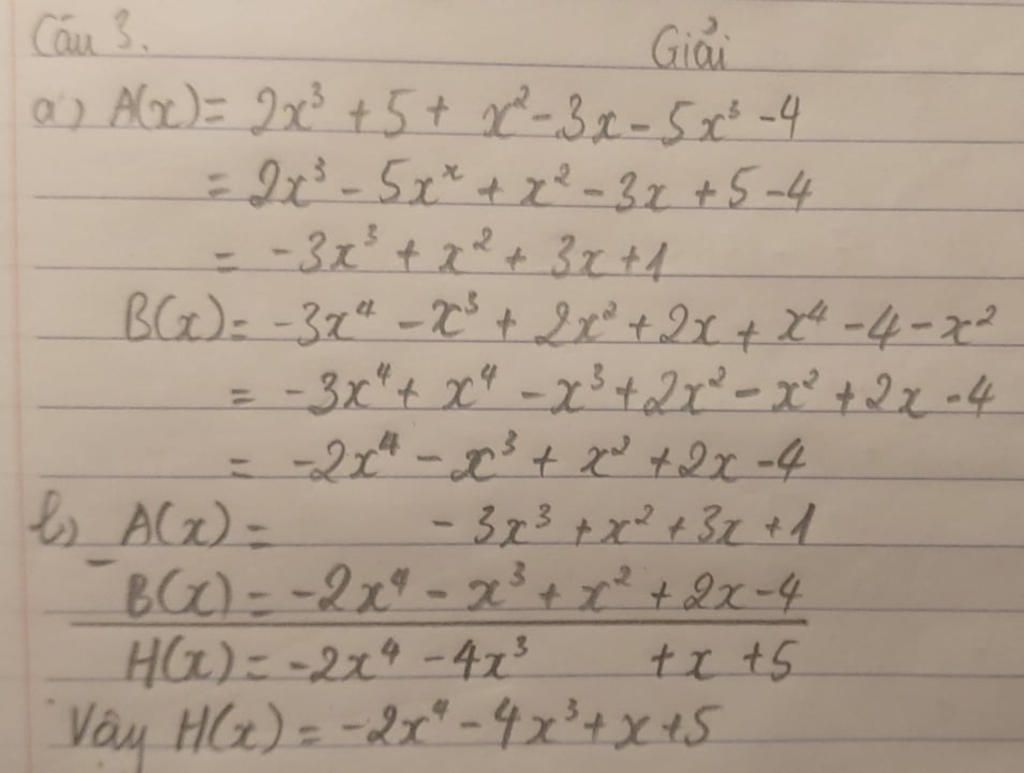 Câu 3. Giải
a) A(x) = 2x³ + 5 + x² - 3x - 5x³ - 4
= 2x³ - 5xˣ + x² - 3x + 5 - 4
= -3x³ + x² + 3x + 1
B(x) = -3x⁴ - x³ + 2x² + 2x + x⁴ - 4 - x²
= -3x⁴ + x⁴ - x³ + 2x² - x² + 2x - 4
= -2x⁴ - x³ + x² + 2x - 4
b) A(x) = - 3x³ + x² + 3x + 1
-
B(x) = -2x⁴ - x³ + x² + 2x - 4
H(x) = -2x⁴ - 4x³ + x + 5
Vây H(x) = -2x⁴ - 4x³ + x + 5